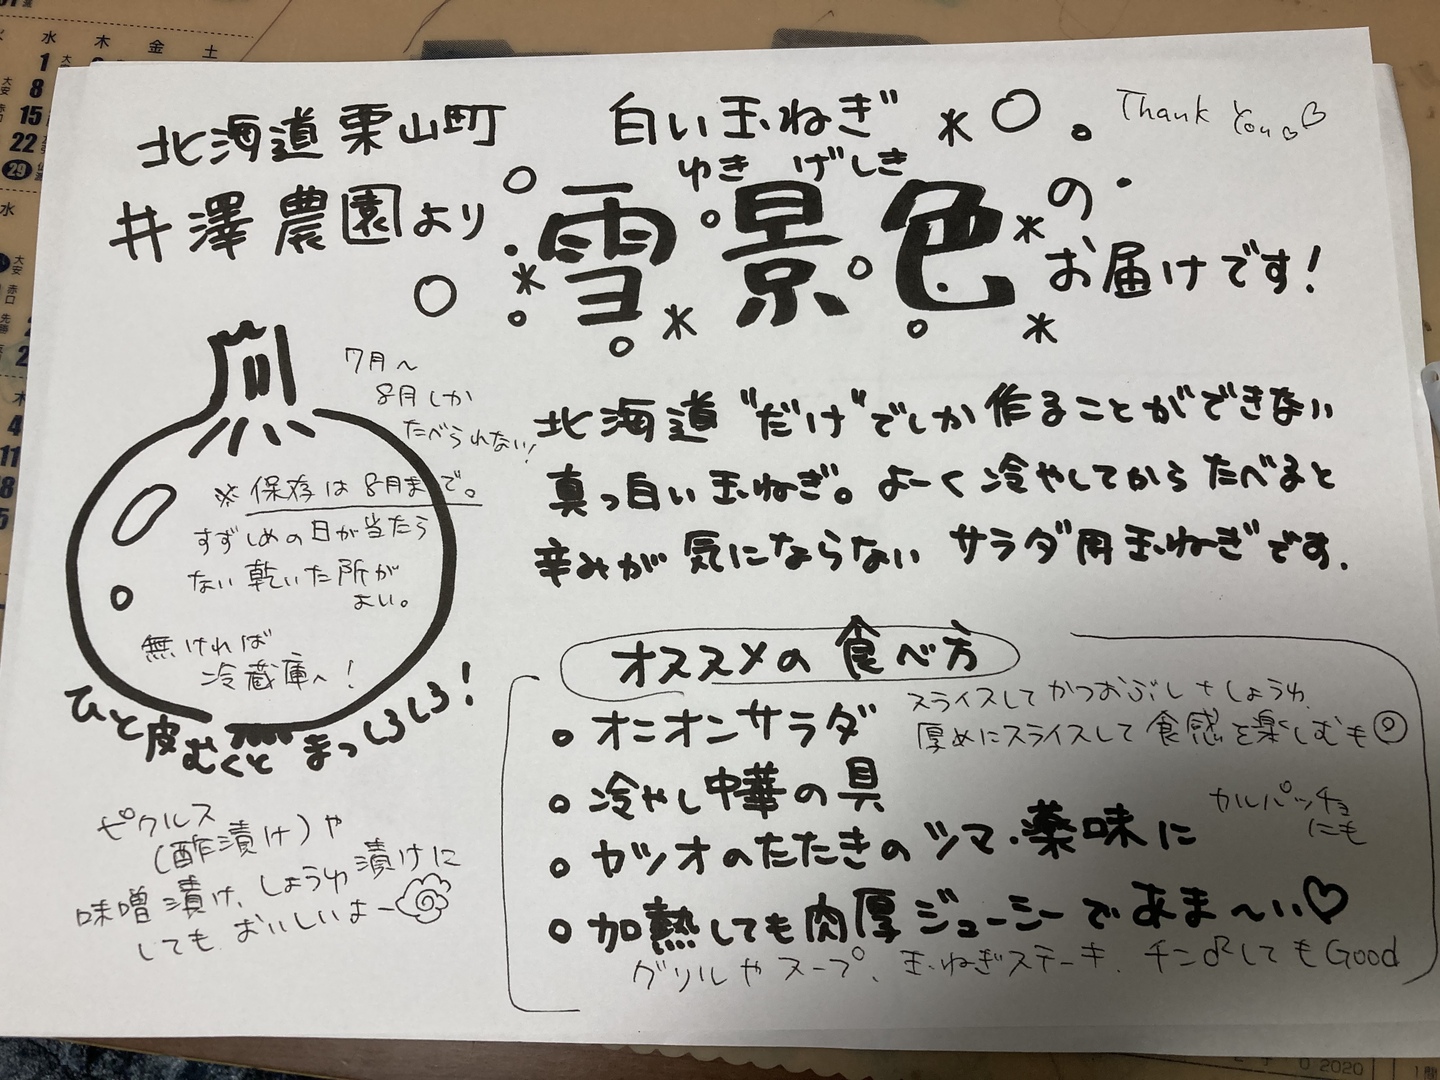 北海道栗山町
井澤農園より
白い玉ねぎ
ゆき げしき
雪景色の
お届けです!
Thank You
7月〜
8月しか
たべられない!
※保存は8月まで。
すずしめの日が当たら
ない乾いた所が
よい。
無ければ
冷蔵庫へ!
ひと皮むくと まっしろしろ!
北海道"だけ"でしか作ることができない
真っ白い玉ねぎ。よーく冷やしてからたべると
辛みが気にならない サラダ用玉ねぎです.
オススメの食べ方
オニオンサラダ
スライスしてかつおぶし+しょうゆ.
厚めにスライスして食感を楽しむも◎
冷やし中華の具
カツオのたたきのツマ・薬味に
カルパッチョ
にも
加熱しても肉厚ジューシーであま〜い♡
グリルやスープ、玉ねぎステーキ.チンしてもGood
ピクルス
(酢漬け)や
味噌漬け、しょうゆ漬けに
しても、おいしいよー
水 木 金 土
1
8
15
22
29
水
木
4
11
2020